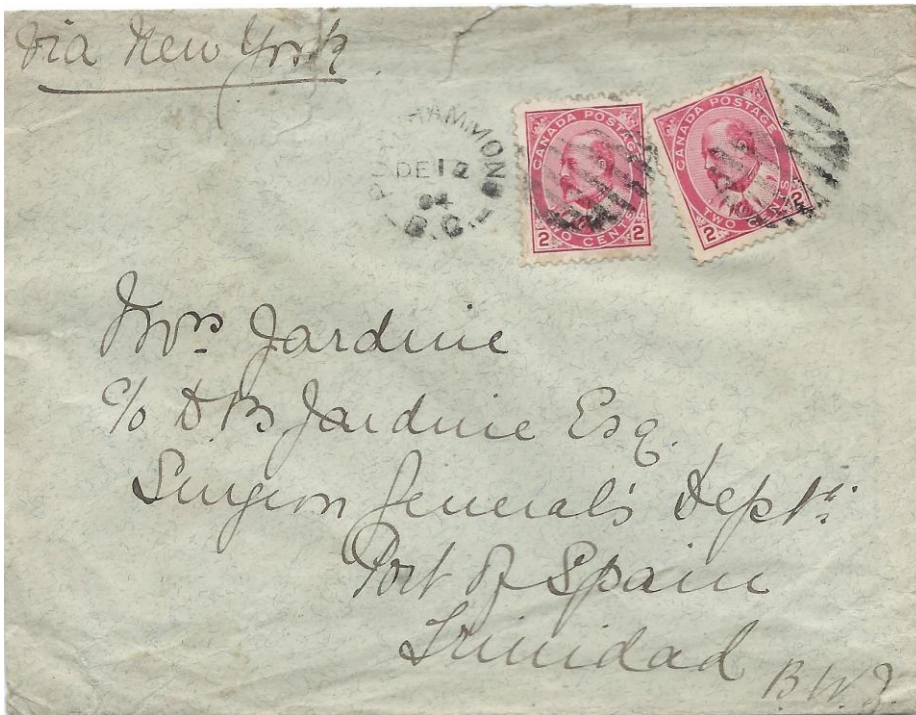 Via New York
PORT HAMMOND
DE 12
04
B.C.
CANADA POSTAGE
2 TWO CENTS 2
CANADA POSTAGE
2 TWO CENTS 2
Mrs. Jardine
c/o D.B Jardine Esq.
Surgeon General's Dept:
Port of Spain
Trinidad
B.W.I.